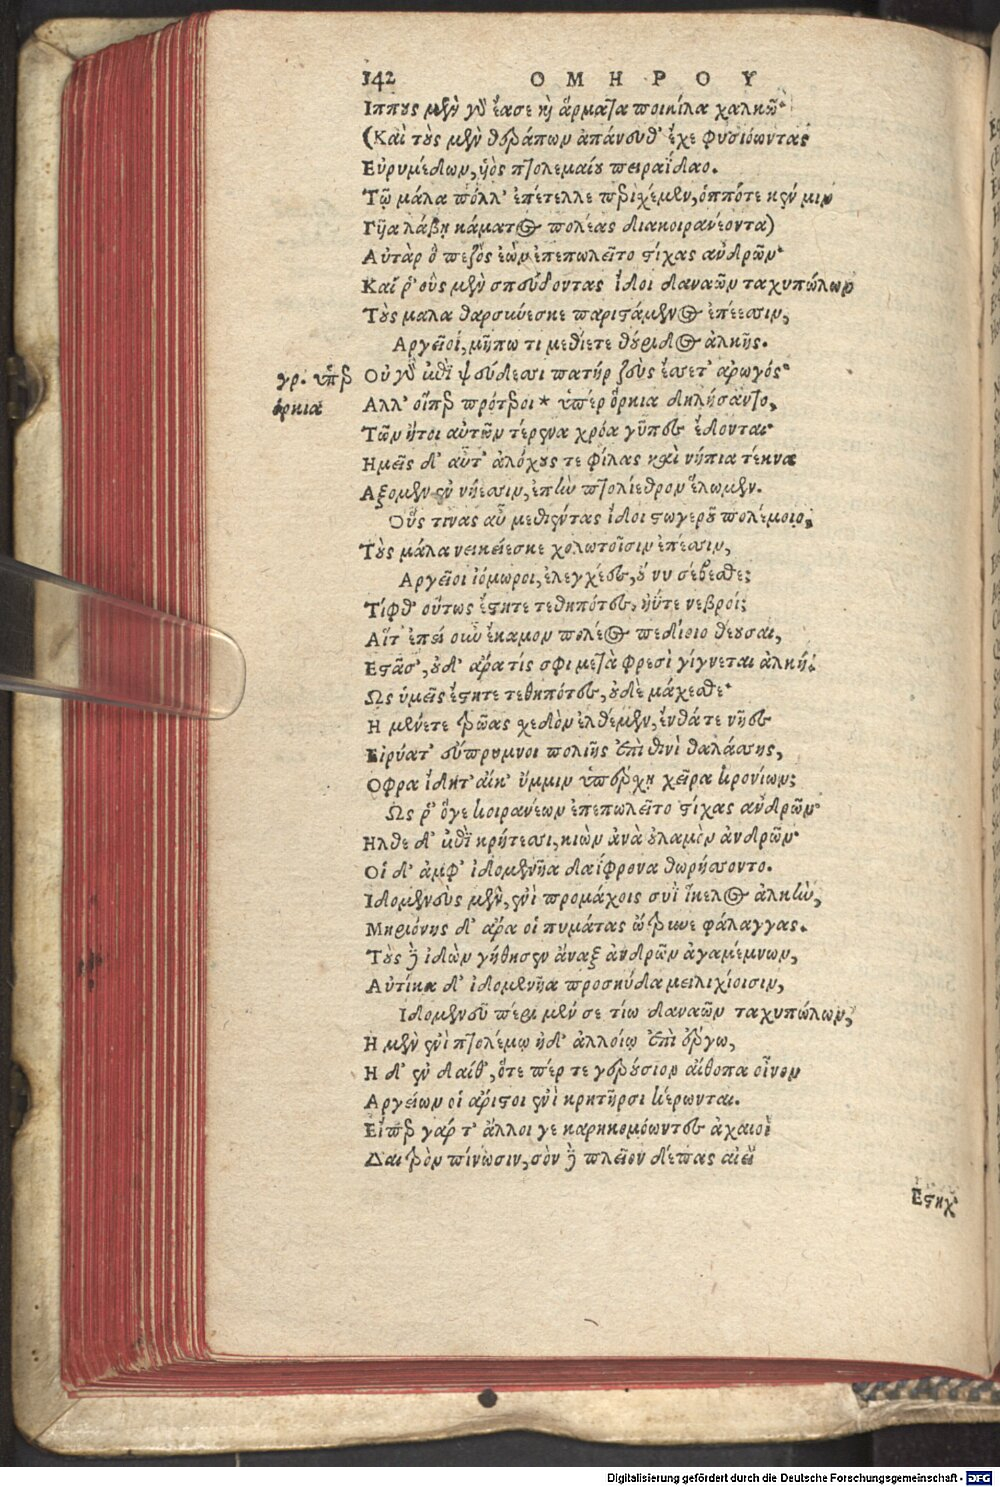 142 ΟΜΗΡΟΥ
Ιππους μὲν γὸ ἔασε κὶ ἅρματα ποικίλα χαλκῷ·
(Καὶ τοὺς μὲν θεράπων ἀπάνευθ' ἔχε φυσιόωντας
Εὐρυμέδων, ὑὸς πτολεμαίου πειραΐδαο.
Τῷ μάλα πόλλ' ἐπέτελλε παρισχέμεν, ὁππότε κέν μιν
Γῦια λάβῃ κάματος πολέας διακοιρανέοντα)
Αὐτὰρ ὁ πεζὸς ἐὼν ἐπεπωλεῖτο στίχας ἀνδρῶν·
Καί ῥ' οὓς μὲν σπεύδοντας ἴδοι δαναῶν ταχυπώλων
Τοὺς μάλα θαρσύνεσκε παριστάμενος ἐπέεσσιν,
Αργεῖοί, μήπω τι μεθίετε θούριδος ἀλκῆς.
γρ. ὑπὲρ Οὐ γὸ ἐπὶ ψεύδεσσι πατὴρ ζεὺς ἔσσετ' ἀρωγός·
ὅρκια Αλλ' οἵπερ πρότεροι * ὑπέρ ὅρκια δηλήσαντο,
Τῶν ἤτοι αὐτῶν τέρενα χρόα γῦπες ἔδονται·
Ημεῖς δ' αὖτ' ἀλόχους τε φίλας καὶ νήπια τέκνα
Αξομεν ἐν νήεσσιν, ἐπὴν πτολίεθρον ἕλωμεν.
Οὕς τινας αὖ μεθιέντας ἴδοι στυγεροῦ πολέμοιο,
Τοὺς μάλα νεικείεσκε χολωτοῖσιν ἐπέεσσιν,
Αργεῖοι ἰόμωροι, ἐλεγχέες, οὔ νυ σέβεσθε;
Τίφθ' οὕτως ἔστητε τεθηπότες, ἠΰτε νεβροί;
Αἵτ' ἐπεί οὖν ἔκαμον πολέος πεδίοιο θέουσαι,
Εστᾶσ', οὐδ' ἄρα τίς σφι μετὰ φρεσὶ γίγνεται ἀλκή·
Ως ὑμεῖς ἔστητε τεθηπότες, οὐδὲ μάχεσθε·
Η μένετε τρῶας σχεδὸν ἐλθέμεν, ἔνθάτε νῆες
Εἰρύατ' εὔπρυμνοι πολιῆς ἐπὶ θινὶ θαλάσσης,
Οφρα ἴδητ' αἴκ' ὔμμιν ὑπέρχῃ χεῖρα κρονίων;
Ως ῥ' ὅγε κοιρανέων ἐπεπωλεῖτο στίχας ἀνδρῶν·
Ηλθε δ' ἐπὶ κρήτεσσι, κιὼν ἀνὰ οὐλαμὸν ἀνδρῶν·
Οἱ δ' ἀμφ' ἰδομενῆα δαίφρονα θωρήσσοντο.
Ιδομενεὺς μὲν, ἐνὶ προμάχοις συῒ ἴκελος ἀλκὴν,
Μηριόνης δ' ἄρα οἱ πυμάτας ὤτρυνε φάλαγγας.
Τοὺς δὲ ἰδὼν γήθησεν ἄναξ ἀνδρῶν ἀγαμέμνων,
Αὐτίκα δ' ἰδομενῆα προσηύδα μειλιχίοισιν,
Ιδομενεῦ πέρι μέν σε τίω δαναῶν ταχυπώλων,
Η μὲν ἐνὶ πτολέμῳ ἠδ' ἀλλοίῳ ἐπὶ ἔργῳ,
Η δ' ἐν δαίθ', ὅτε πέρ τε γερούσιον αἴθοπα οἶνον
Αργείων οἱ ἄριστοι ἐνὶ κρητῆρσι κέρωνται.
Εἴπερ γάρ τ' ἄλλοι γε καρηκομόωντες ἀχαιοὶ
Δαιτρὸν πίνωσιν, σὸν δὲ πλεῖον δέπας αἰεὶ
Εστηχ'
Digitalisierung gefördert durch die Deutsche Forschungsgemeinschaft - DFG